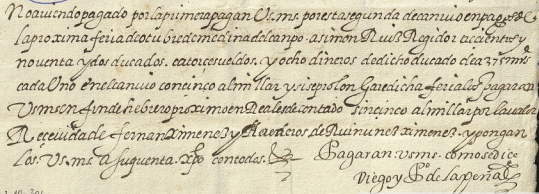 No aviendo pagado por la primera pagan Vs. ms. por esta segunda de canvio en pagos de
la proxima feria de otubre de medina del canpo. a simon Ruiz Regidor ciento y
noventa y dos ducados. catorce sueldos. y ocho dineros de dicho ducado de a 375 mrs
cada Uno en el canvio con cinco al millar y si se prolongare dicha feria los pagaran
Vs ms en fin de hebrero proximo en Reales de contado sin cinco al millar por la valor
Recevida de fernan Ximenez y herederos de Ruy nunez ximenez. y pongan
los. Vs. ms. a su quenta. xpo con todos.
Pagaran. vs ms. como se dice
Diego y Po de la peña